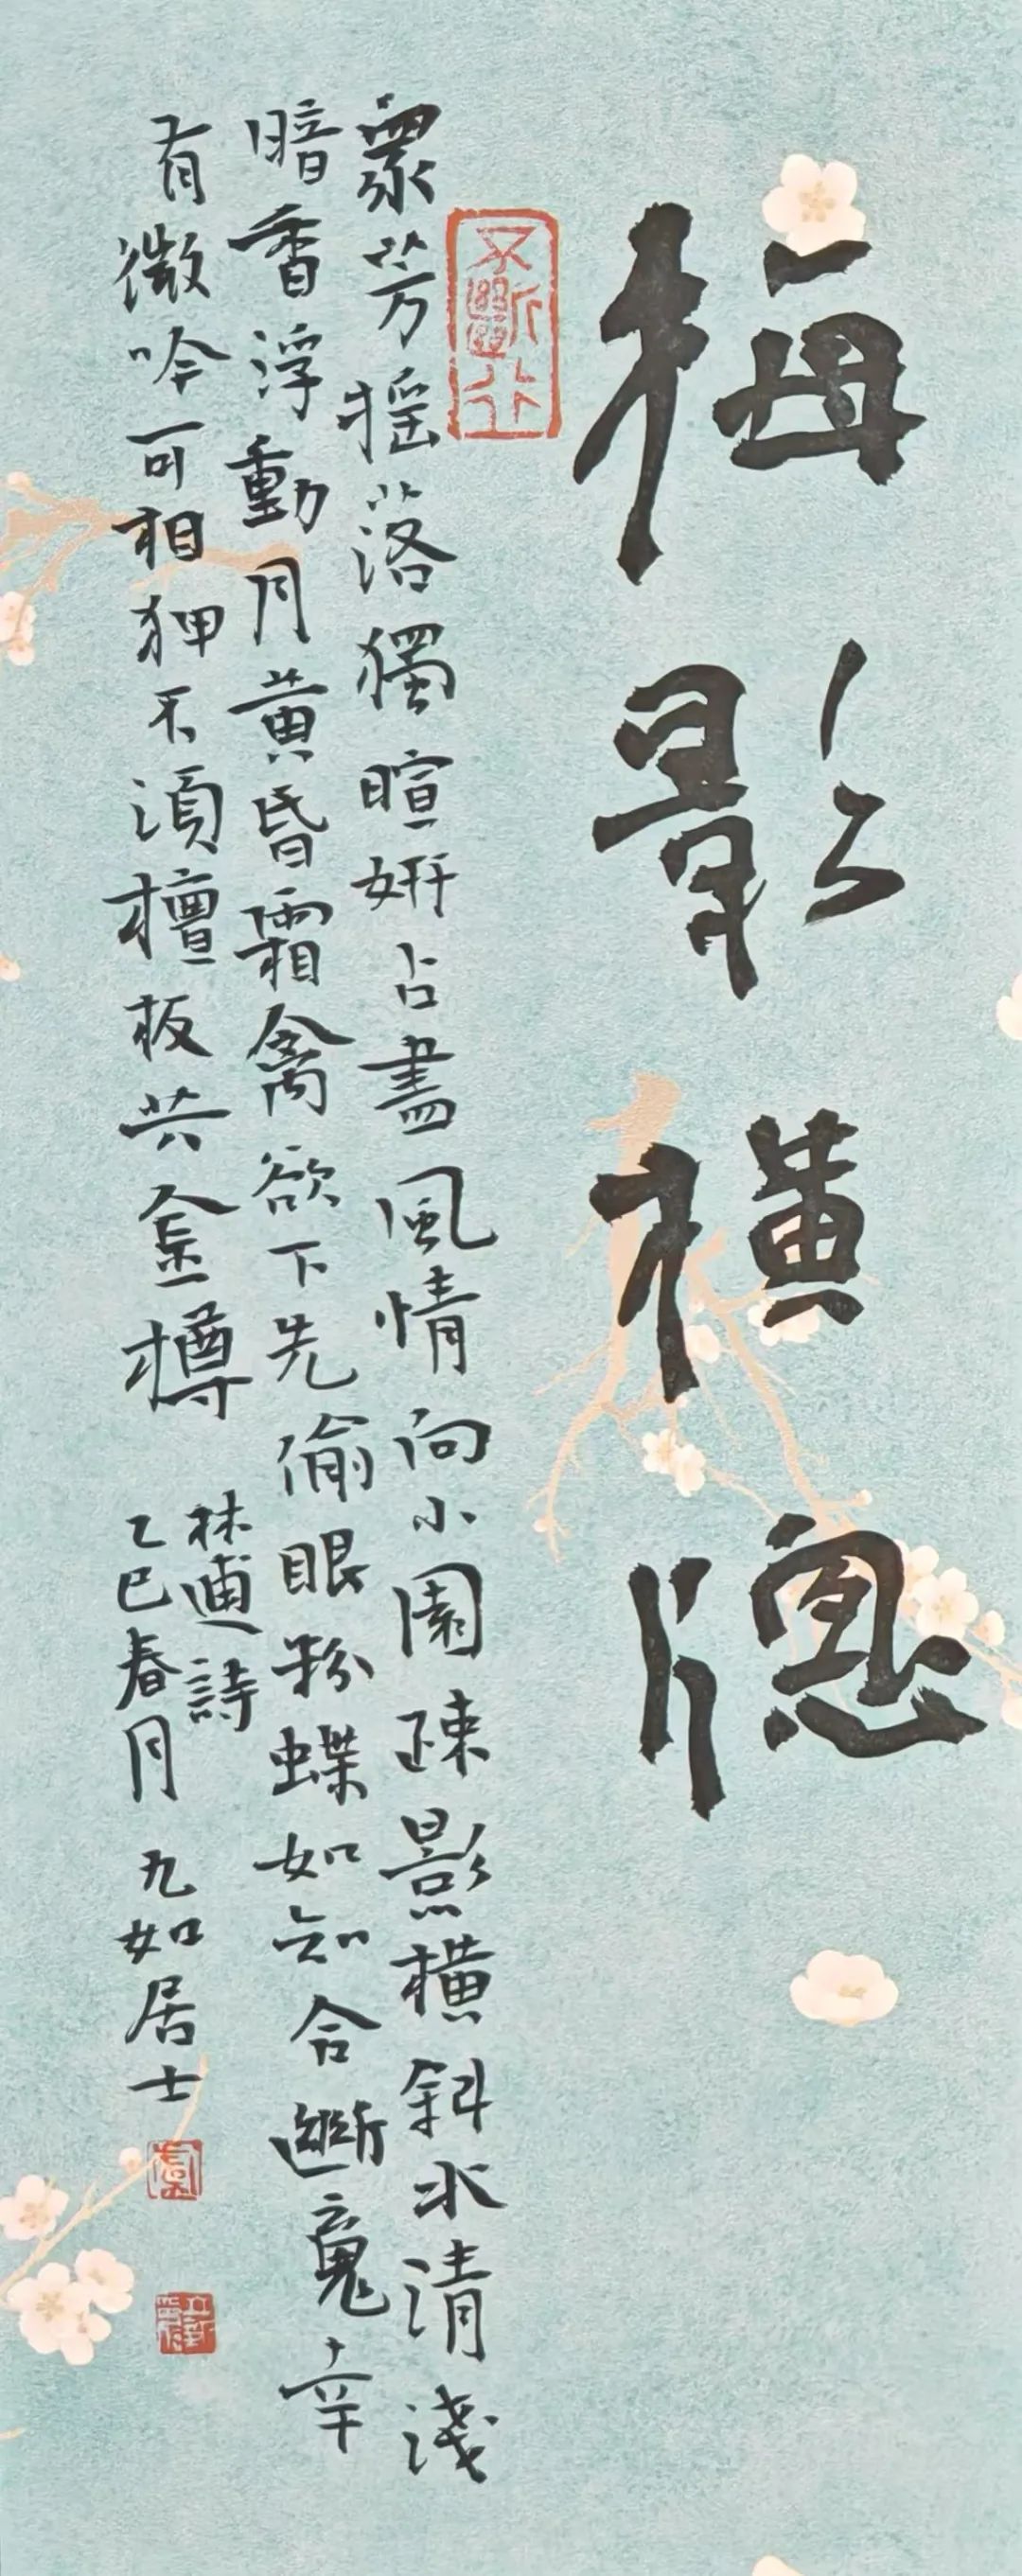 梅影橫牕
衆芳搖落獨暄妍占盡風情向小園疎影橫斜水清淺
暗香浮動月黃昏霜禽欲下先偷眼粉蝶如知合斷魂幸
有微吟可相狎不須檀板共金樽
林逋詩
乙巳春月 九如居士